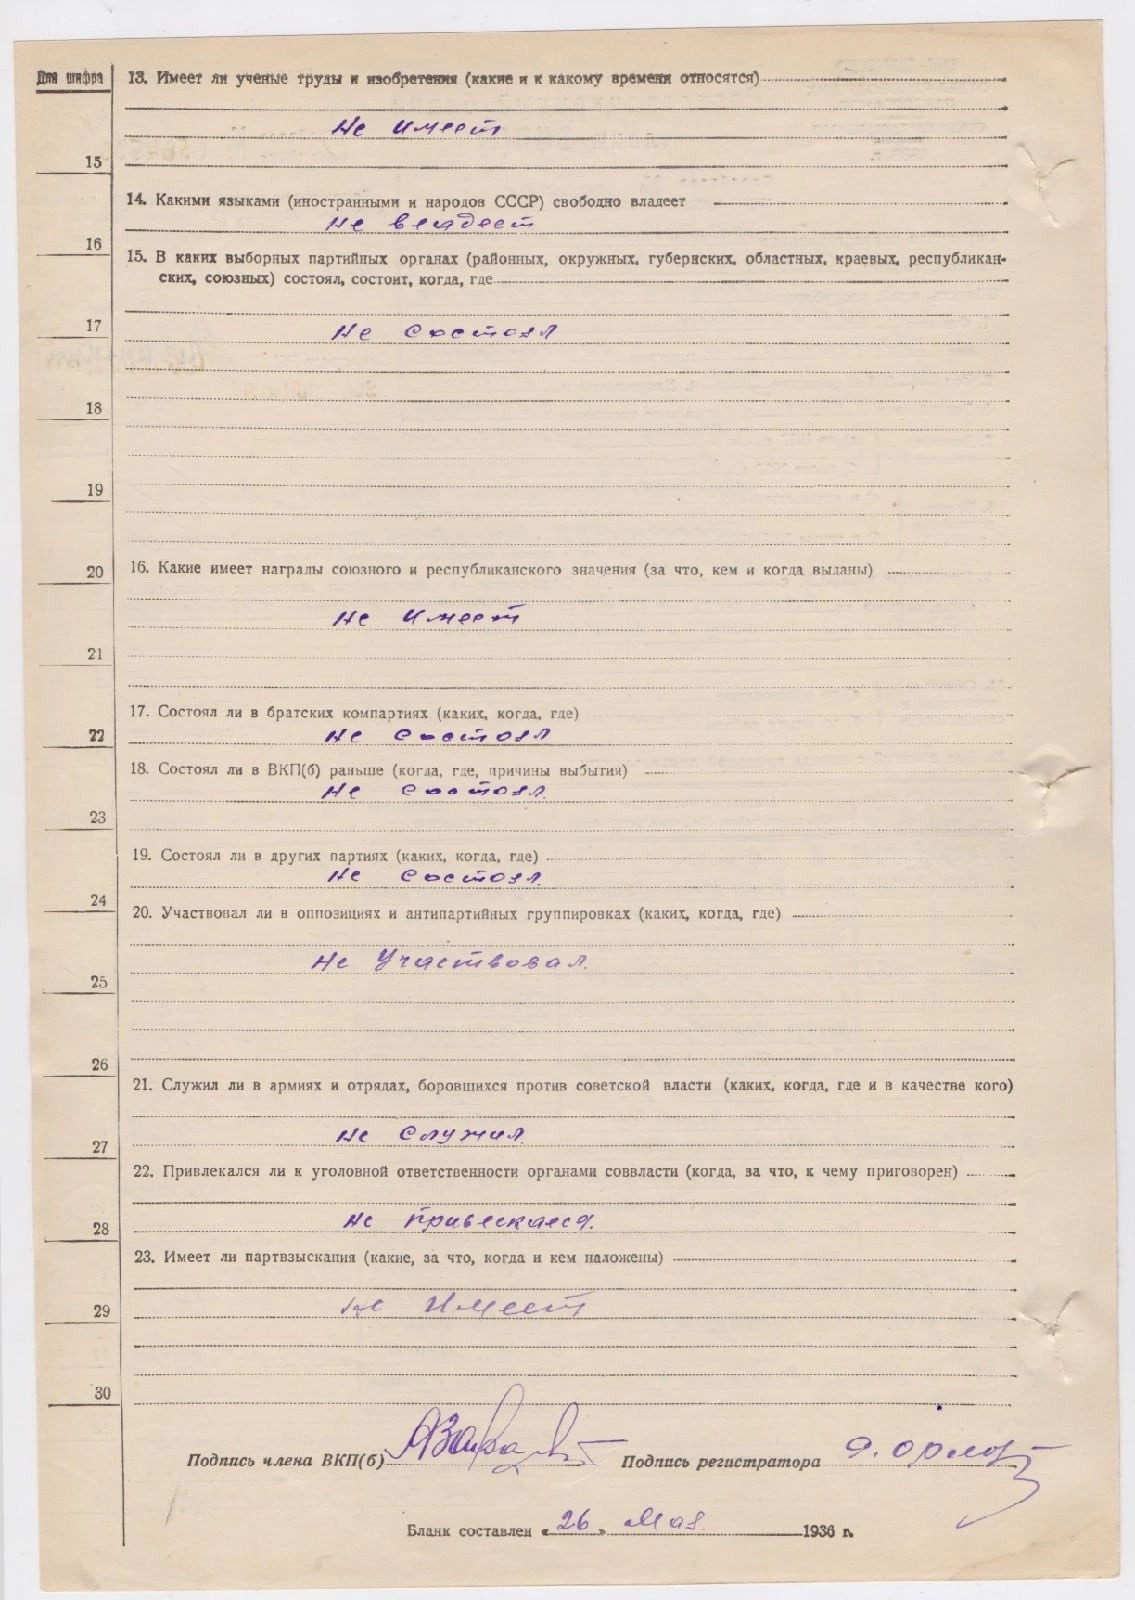 Для шифра
13. Имеет ли ученые труды и изобретения (какие и к какому времени относятся)
Не имеет
15
14. Какими языками (иностранными и народов СССР) свободно владеет
Не владеет
16
15. В каких выборных партийных органах (районных, окружных, губернских, областных, краевых, республикан-
ских, союзных) состоял, состоит, когда, где
17
Не состоял
18
19
20
16. Какие имеет награды союзного и республиканского значения (за что, кем и когда выданы)
Не имеет
21
17. Состоял ли в братских компартиях (каких, когда, где)
22
Не состоял
18. Состоял ли в ВКП(б) раньше (когда, где, причины выбытия)
Не состоял.
23
19. Состоял ли в других партиях (каких, когда, где)
Не состоял.
24
20. Участвовал ли в оппозициях и антипартийных группировках (каких, когда, где)
Не участвовал.
25
26
21. Служил ли в армиях и отрядах, боровшихся против советской власти (каких, когда, где и в качестве кого)
Не служил.
27
22. Привлекался ли к уголовной ответственности органами соввласти (когда, за что, к чему приговорен)
Не привлекался.
28
23. Имеет ли партвзыскания (какие, за что, когда и кем наложены)
Не имеет
29
30
Подпись члена ВКП(б) Подпись регистратора Я. Орлов
Бланк составлен «26» Мая 1936 г.